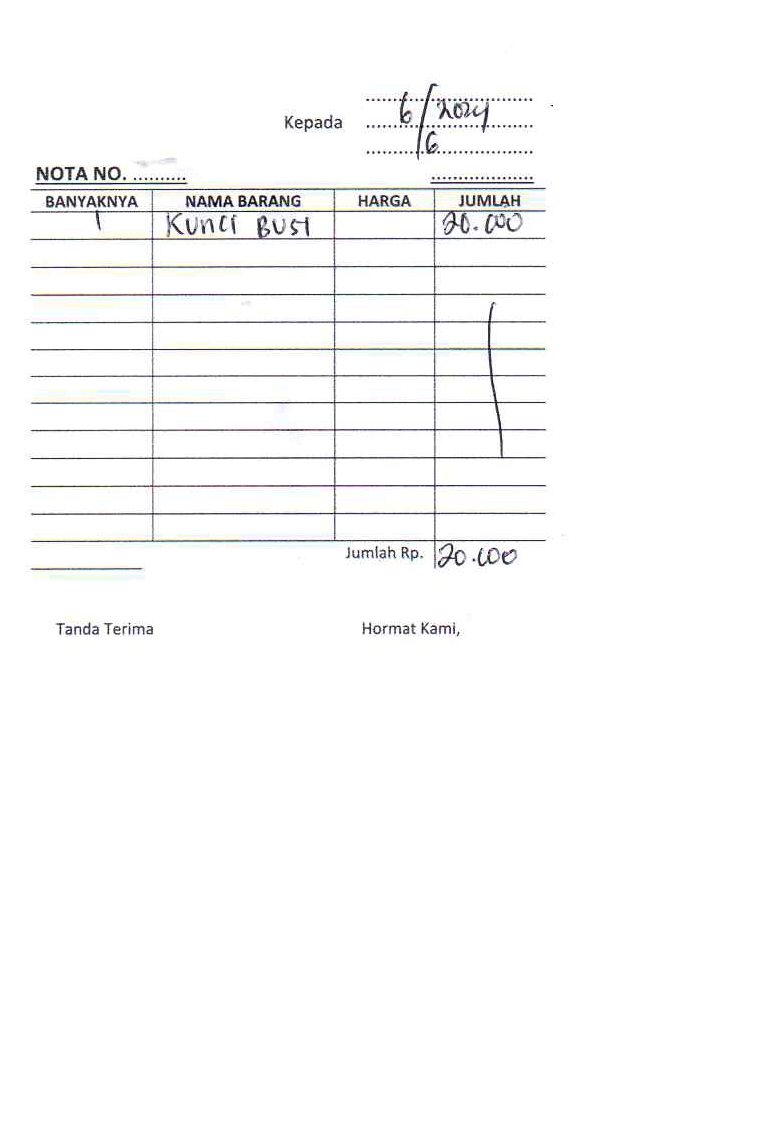 6/2024
Kepada
6
NOTA NO. ..........
BANYAKNYA NAMA BARANG HARGA JUMLAH
1 Kunci BUSI 20.000
Jumlah Rp. 20.000
Tanda Terima Hormat Kami,